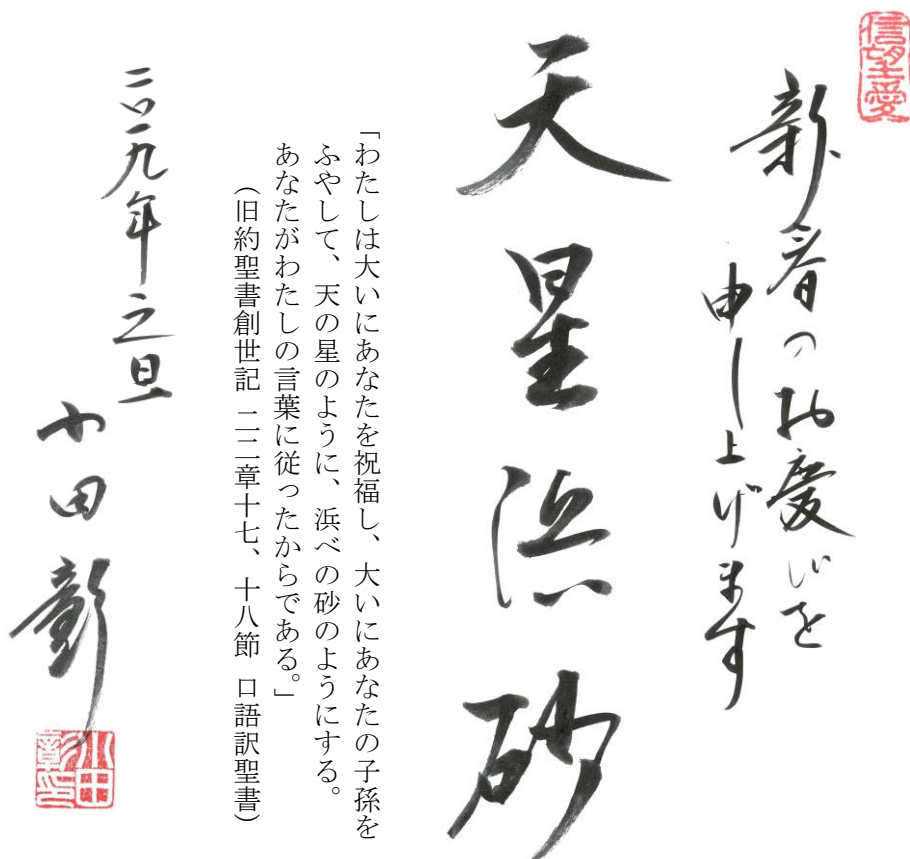 信望愛
新春のお慶びを
申し上げます
天星浜砂
「わたしは大いにあなたを祝福し、大いにあなたの子孫を
ふやして、天の星のように、浜べの砂のようにする。
あなたがわたしの言葉に従ったからである。」
(旧約聖書創世記 二二章十七、十八節 口語訳聖書)
二〇一九年元旦
小田彰
小田彰印